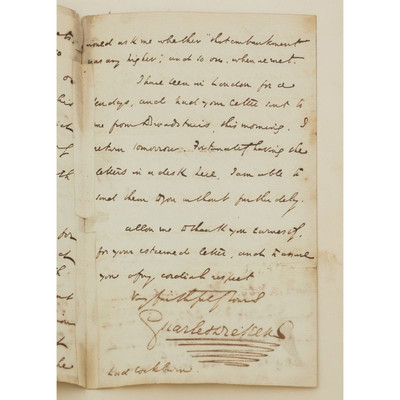 would ask me whether "that embankment
was any higher", and so on, when we met.
I have been in London for a
few days, and had your letter sent to
me from Broadstairs, this morning. I
return tomorrow. Fortunately having the
letters in a desk here, I am able to
send them to you without further delay.
Allow me to thank you earnestly
for your esteemed letter, and to assure
you of my cordial respect
Very faithfully Yours
Charles Dickens
Lord Cockburn.